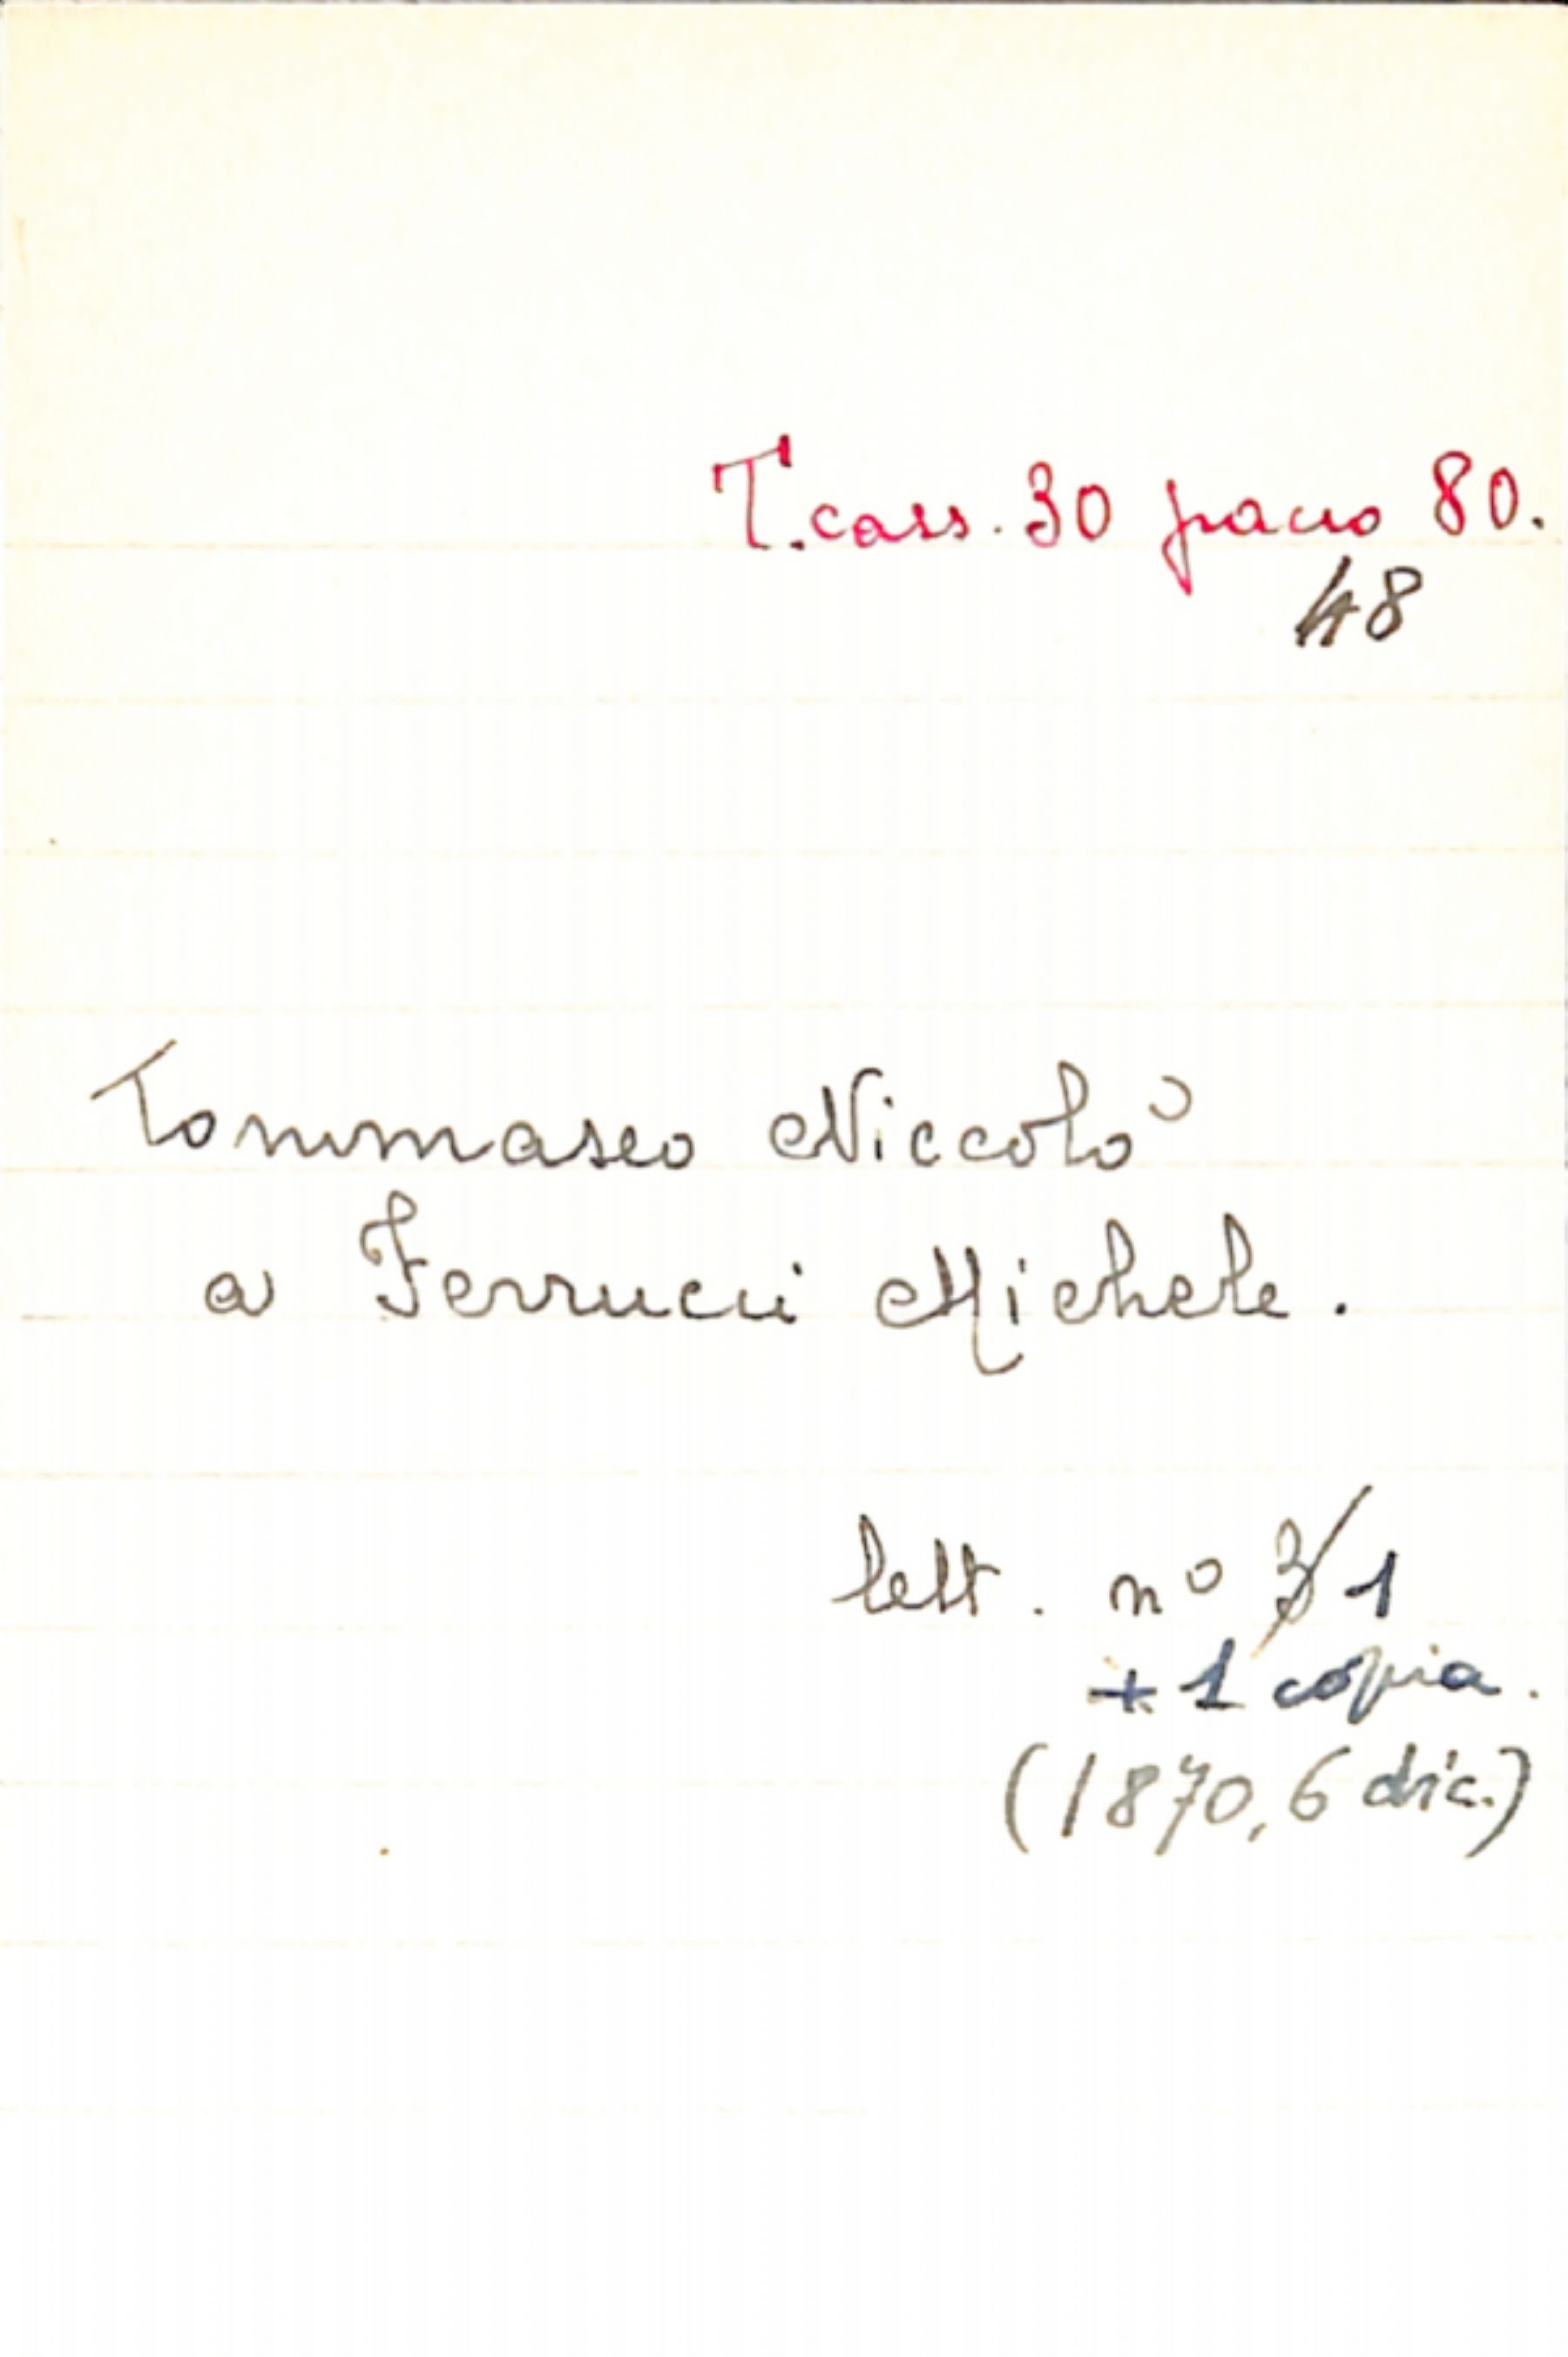 T. cass. 30 pacco 80.
48
Tommaseo Niccolò
a Ferrucci Michele.
lett. n° 3 1
+ 1 copia.
(1870, 6 dic.)